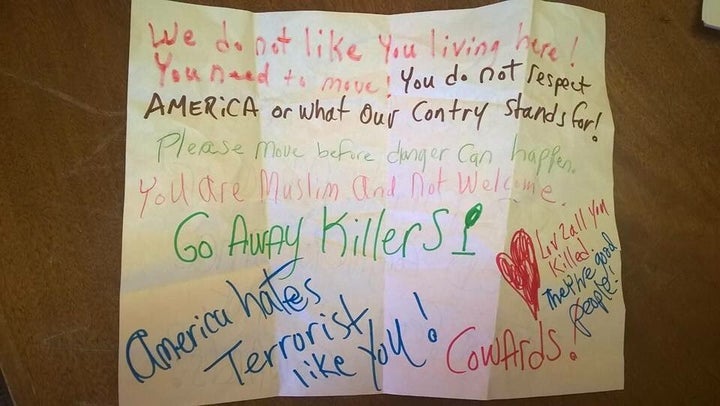 We do not like You living here!
You need to move! You do not respect
AMERiCA or what Our Contry Stands for!
Please move before danger Can happen.
You are Muslim And Not Welcome.
Go AWAY KillerS!
Luv 2 all You
Killed.
They're good
people!
America hates
Terrorist
like You!
Cowards!